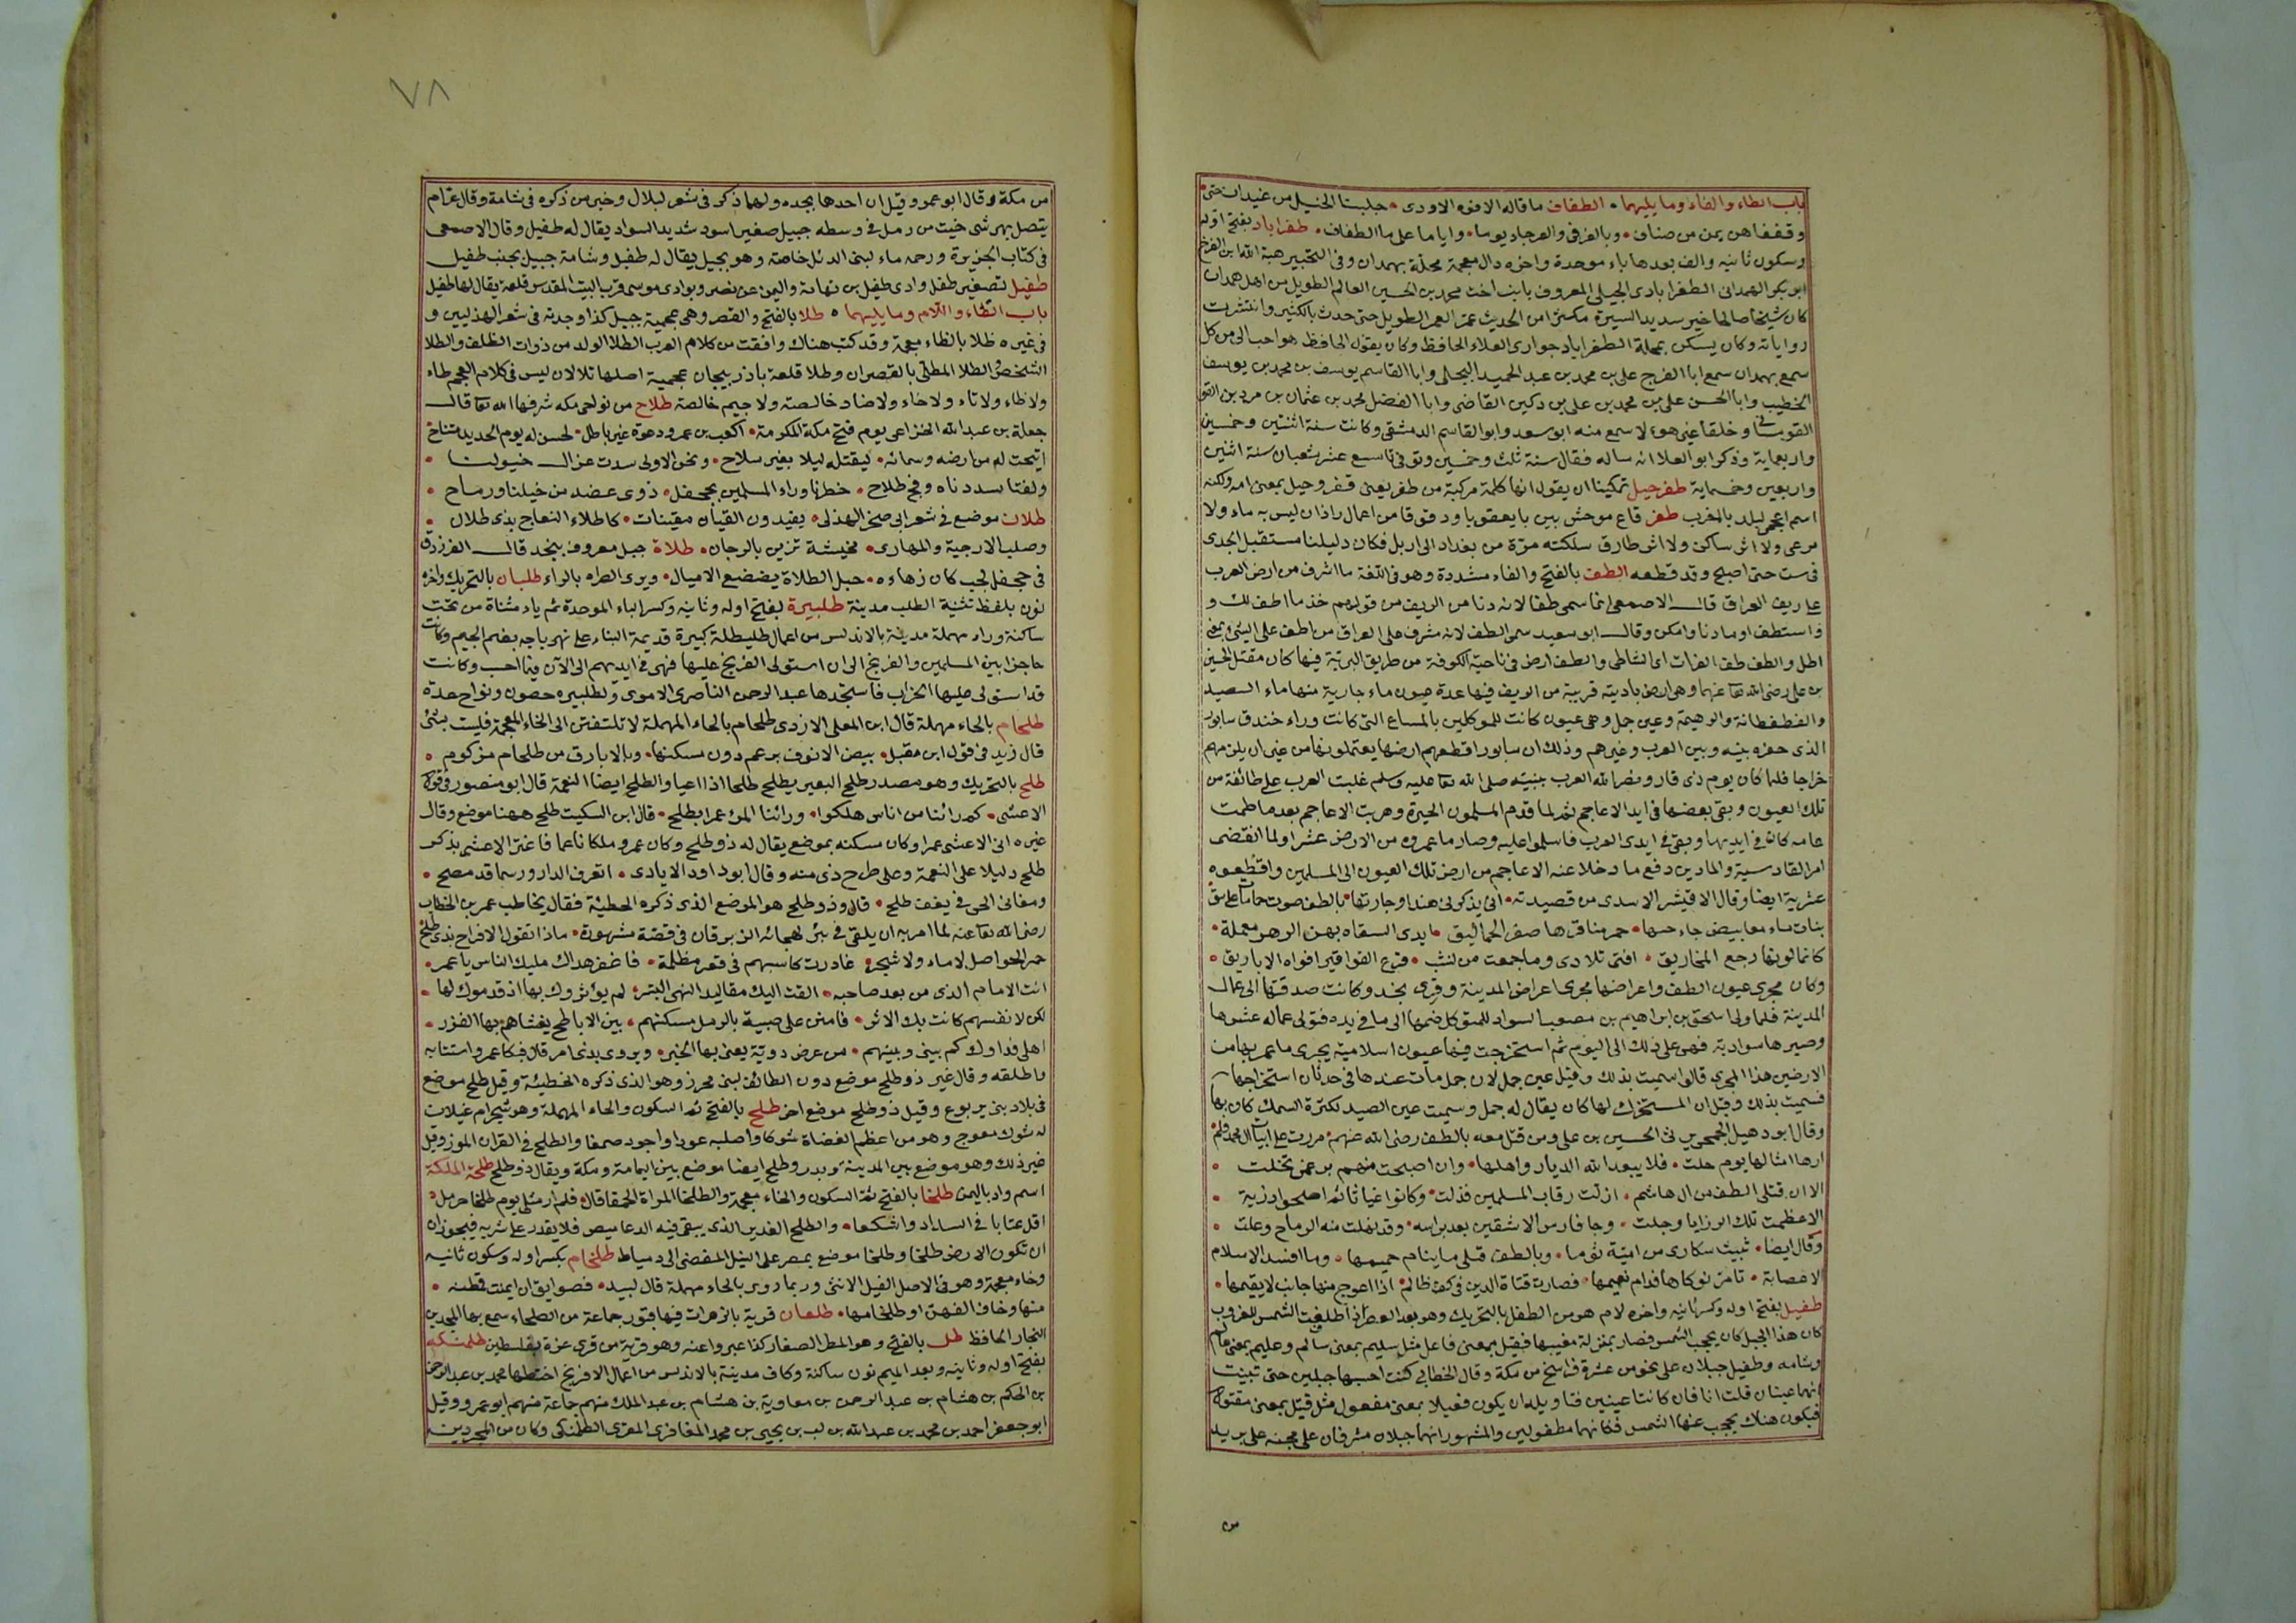 باب الطاء والفاء وما يليهما الطفاف ما قاله الافوه الاودى جلبنا الخيل من غيدان حتى
وقفناهن يمن من صناف وبالغرفى والعرجاد يوما واياما على ما الطفاف طفراباد بفتح اوله
وسكون ثانيه والف بعدها باء موحدة واخره دال معجمة محلة بهمدان وفى التحبير هبة الله ابن الفرج
ابو بكر الهمدانى الطفرابادى الجيلى المعروف بابن اخت محمد بن الحسين العالم الطويل من اهل همدان
كان شيخا صالحا خير سديد السيرة مكثرا من الحديث عمر العمر الطويل حتى حدث بالكثير وانتشرت
رواياته وكان يسكن بمحلة الطفراباد جوار ابى العلاء الحافظ وكان يقول الحافظ هو احب الى من كل
سمع بهمدان سمع ابا الفرج على بن محمد بن عبد الحميد البجلى وابا القاسم يوسف بن محمد بن يوسف
الخطيب وابا الحسن على بن محمد بن على بن دكين القاضى وابا الفضل محمد بن عثمان بن مردين القو
القومسانى وخلقا غير هؤلا سمع منه ابو سعد وابو القاسم الدمشقى وكانت سنة اثنتين وخمسين
واربعماية وذكر ابو العلا انه ساله فقال سنة ثلث وخمسين وتوفى تاسع عشر شعبان سنة اثنين
واربعين وخمسماية طفرجيل تمكينا ان يقول انها كلمة مركبة من طفر يعنى قفر وجيل بمعنى امة ولكنه
اسم اعجمى لبلد بالمغرب طفر قاع موحش بين بايعقوبا ودقوقا من اعمال راذان ليس به ماء ولا
مرعى ولا اثر ساكن ولا اثر طارق سلكته مرة من بغداد الى اربل فكان دليلنا مستقبل الجدى
فى ست حتى اصبح وقد قطعه الطف بالفتح والفاء مشددة وهو فى اللغة ما اشرف من ارض العرب
على ريف العراق قال الاصمعى انما سمى طفا لانه دنا من الريف من قولهم خذ ما اطف لك و
واستطف او ما دنا وامكن وقال ابو سعيد سمى الطف لانه مشرف على العراق من اطف على الشئ بمعنى
اطل والطف طف الفرات اى الشاطى والطف ارض فى ناحية الكوفة من طريق البرية فيها كان مقتل الحسين
بن على رضى الله تعا عنهما وهى ارض بادية قريبة من الريف فيها عدة عيون ماء جارية منها ماء الصيد
والقطقطانة والرهيمة وعين جمل وهى عيون كانت للموكلين بالمسالح التى كانت وراء خندق سابور
الذى حفره بينه وبين العرب وغيرهم وذلك ان سابور اقطعهم ارضها يعتملونها من غير ان يلزمهم
خراجا فلما كان يوم ذى قار ونصر الله العرب بنبيه صلى الله تعا عليه وسلم غلبت العرب على طائفة من
تلك العيون وبقى بعضها فى ايد الاعاجم ثم لما قدم المسلمون الحيرة وهربت الاعاجم بعد ما طمت
عامة كان فى ايديها وبقى فى ايدى العرب فاسلموا عليه وصار ما عمروه من الارض عشرا ولما انقضى
امر القادسية والمداين دفع ما دخلا عنه الاعاجم من ارض تلك العيون الى المسلمين واقطعوه
عشرية ايضا وقال الاقيشر الاسدى من قصيدته انى يذكرنى هندا وجارتها بالطف صوت حمامات على نيق
بنات ماء معا بيض جاءحبها حمر مناقرها صفر الحماليق ايدى السقاة بهن الدهر معملة
كانما لونها رجع المخاريق افنى تلادى وما جمعت من نشب قرع القواقيز افواه الاباريق
وكان مجرى عيون الطف واعراضها مجرى اعراض المدينة وقرى نجد وكانت صدقتها الى عمال
المدينة فلما ولى اسحق بن ابراهيم بن مصعب السواد للمتوكل ضمها الى ما فى يده فتولى عماله عشرها
وصيرها سوادية فهى على ذلك الى اليوم ثم استخرجت فيها عيون اسلامية يجرى ما عمر بها من
الارضين هذا المجرى قالوا سميت بذلك وقيل عين جمل لان جمل مات عندها فى حدثان استخراجها
فسميت بذلك وقيل ان المستخرج لها كان يقال له جمل وسميت عين الصيد لكثرة السمك كان بها
وقال ابو دهبل الجمحى يرثى الحسين بن على ومن قتل معه بالطف رضى الله عنهم مررت على ابيات ال محمد فلم
ارها امثالها يوم حلت فلا يبعد الله الديار واهلها وان اصبحت منهم برغمى تخلت
الا ان قتلى الطف من ال هاشم اذلت رقاب المسلمين فذلت وكانوا غياثا ثم اضحوا رزية
الا عظمت تلك الرزايا وجلت وجا فارس الاشقين بعد براسه وقد نهلت منه الرماح وعلت
وقال ايضا تبيت سكارى من امية نوما وبالطف قتلى ما ينام حميمها وما افسد الاسلام
الا عصابة تامر نوكاها فدام نعيمها فصارت قناة الدين فى كف ظالم اذا اعوج منها جانب لا يقيمها
طفيل بفتح اوله وكسر ثانيه واخره لام هو من الطفل بالتحريك وهو بعد العصر اذا طفلت الشمس للغروب
كان هذا الجبل كان يحجب الشمس فصار بمنزلة مغيبها فقيل بمعنى فاعل مثل سليم بمعنى سالم وعليم بمعنى عالم
وشامه وطفيل جبلان على نحو من عشرة فراسخ من مكة وقال الخطابى كنت احسبهما جبلين حتى تبينت
انهما عينان قلت انا فان كانتا عينين فتاويله ان يكون فعيلا بمعنى مفعول مثل قتيل بمعنى مقتول
فيكون هناك يحجب عنها الشمس فكانهما مطفولين والمشهور انهما جبلان مشرفان على مجنة على بريد
من
٧٨
من مكة وقال ابو عمرو وقيل ان احدهما بجده ولهما ذكر فى شعر لبلال وخبر من ذكره فى شامة وقال عرام
يتصل بهرشى خيت من رمل فى وسطه جبيل صغير اسود شديد السواد يقال له طفيل وقال الاصمعى
فى كتاب الجزيرة ورحمه ماء لبنى الدئل خاصة وهو بجبيل يقال له طفيل وشامة جبيل بجنب طفيل
طفيل تصغير طفل وادى طفيل بين تهامة واليمن عن نصر وبوادى موسى قرب البيت المقدس قلعة يقال لها طفيل
باب الطاء واللام وما يليهما طلا بالفتح والقصر وهى عجمية جبيل كذا وجدته فى شعر الهذليين و
فى غيره ظلا بالظاء معجمة وقد كتب هناك وافقت من كلام العرب الطلا الولد من ذوات الظلف والطلا
الشخص والطلا المطلى بالقصران وطلا قلعة باذربيجان عجمية اصلها تلا لان ليس فى كلام العجم طاء
ولا ظاء ولا ثاء ولا حاء ولا ضاد خالصة ولا جيم خالصة طلاح من نواحى مكه شرفها الله تعا قال
جعلة بن عبد الله الخزاعى يوم فتح مكة المكرمة اكعب بن عمرو دعوة غير باطل لحسن له يوم الحديد متاح
اتيحت له من ارضه وسمائه ليقتله ليلا بغير سلاح ونحن الاولى سدت غزال خيولنا
ولفتا سددناه وفج طلاح خطرنا وراء المسلمين بجحفل ذوى عضد من خيلنا ورماح
طلان موضع فى شعر ابى صخر الهذلى يفيدون القيان مقينات كاطلاء النعاج بذى طلان
وصلب الارحبية والمهارى مخيسة تزين بالرحان طلاة جبل معروف بنجد قال الفرزدق
فى جحفل لجب كان زهاءه جبل الطلاة يضضع الاميال ويروى الصراه بالراء طلبان بالتحريك واخره
نون بلفظ تثنية الطلب مدينة طلبيرة بفتح اوله وثانيه وكسر الباء الموحدة ثم ياء مثناة من تحت
ساكنة وراء مهملة مدينة بالاندلس من اعمال طليطلة كبيرة قديمة البناء على نهر باجه بضم الجيم وكانت
حاجزا بين المسلمين والفرنج الى ان استولى الفرنج عليها فهى فى ايديهم الى الآن فيما احسب وكانت
قد استولى عليها الخراب فاستجدها عبد الرحمن الناصرى الاموى ولطلبيره حصون ونواح عدة
طلحام بالحاء مهملة قال ابن المعلى الازدى طلحام بالحاء المهملة لا تلتفتن الى الخاء المعجمة فليست بشئ
قال زيد فى قول ابن مقبل بيض الانوق برعم دون مسكنها وبالابارق من طلحام مركوم
طلح بالتحريك وهو مصدر طلح البعير يطلح طلحا اذا اعيا والطلح ايضا النعمة قال ابو منصور فى قول
الاعشى كم راينا من اناس هلكوا وراينا المرء عمرا بطلح قال ابن السكيت طلح ههنا موضع وقال
غيره اتى الاعشى عمرا وكان مسكنه بموضع يقال له ذو طلح وكان عمرو ملكا ناعما فاعتر الاعشى بذكر
طلح دليلا على النعمة وعلى طرح ذى منه وقال ابو داود الايادى اتعرف الدار ورسما قد مصح
ومغانى الحى فى نعف طلح قال وذو طلح هو الموضع الذى ذكره الحطيئة فقال يخاطب عمر بن الخطاب
رضى الله تعا عنه لما امر به ان يلقى فى بئر لهجائه الزبرقان فى قصة مشهورة ماذا تقول لافراخ بذى طلح
حمر الحواصل لا ماء ولا شجر غادرت كاسبهم فى قعر مظلمة فاغفر هداك مليك الناس يا عمر
انت الامام الذى من بعد صاحبه القت اليك مقاليد النهى البشر لم يؤثروك بها اذ قدموك لها
لكن لانفسهم كانت بك الاثر فامنن على صبية بالرمل مسكنهم بين الاباطح يغشاهم بها القزر
اهلى فداوك كم بينى وبينهم من عرض دوية يعنى بها الخبر ويروى بذى امر قال فبكا عمر واستتابه
واطلقه وقال غير ذو طلح موضع دون الطائف لبنى محرز وهو الذى ذكره الحطيئة وقيل طلح موضع
فى بلاد بنى يربوع وقيل ذو طلح موضع اخر طلح بالفتح ثم السكون والحاء المهملة وهو شجر ام غيلان
له شوك معوج وهو من اعظم العضاة شوكا واصلبه عودا واجوده صمغا والطلح فى القران الموز وقيل
غير ذلك وهو موضع بين المدينة وبدر وطلح ايضا موضع بين اليمامة ومكة ويقال ذو طلح طلحة الملكة
اسم واد باليمن طلخا بالفتح ثم السكون والخاء معجمة والطلخا المراة الحمقا قال فلم ار مثلى يوم طلخا حرمل
اقل عتابا فى السداد واشكعا والطلح الغدير الذى يبقى فيه الدعاميص فلا يقدر على شربه فيجوز ان
ان تكون الارض طلخا وطلخا موضع بمصر على النيل المفضى الى دمياط طلخام بكسر اوله وسكون ثانيه
وخاء معجمة وهو فى الاصل الفيل الانثى وربما روى بالحاء مهملة قال لبيد فصوايق ان ايمنت فمظنه
منها وخاف القهر او طلخامها طلعان قرية بالزهرات فيها قبور جماعة من الصلحاء سمع بها المحب بن
النجار الحافظ طل بالفتح وهو المطر الصغار كذا عبروا عنه وهو قرية من قرى غزة بفلسطين طلمنكه
بفتح اوله وثانيه وبعد الميم نون ساكنة وكاف مدينة بالاندلس من اعمال الافرنج اختطها محمد بن عبد الرحمن
بن الحكم بن هشام بن عبد الرحمن بن معاوية بن هشام بن عبد الملك منهم جماعة منهم ابو عمرو وقيل
ابو جعفر احمد بن محمد بن عبد الله بن لب بن يحيى بن محمد المغافرى المقرى الطلمنكى وكان من المجودين